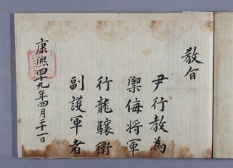 敎旨
尹行敎爲
禦侮將軍
行龍驤衛
副護軍者
康熙四十九年四月二十一日